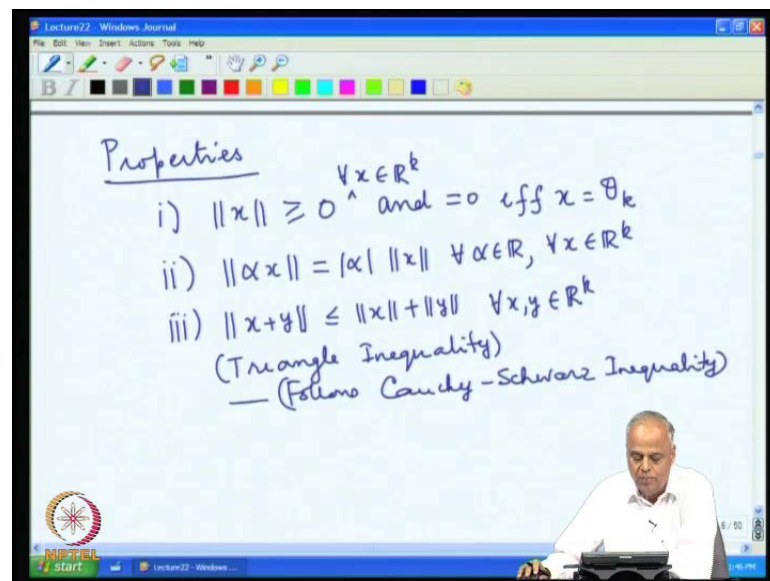 Lecture22 - Windows Journal
File Edit View Insert Actions Tools Help
B I
Properties
∀x∈ℝᵏ
i) ||x|| ≥ 0 ^ and =0 iff x = θₖ
ii) ||αx|| = |α| ||x|| ∀ α∈ℝ, ∀x∈ℝᵏ
iii) ||x+y|| ≤ ||x||+||y|| ∀x,y∈ℝᵏ
(Triangle Inequality)
— (Follows Cauchy-Schwarz Inequality)
6 / 50
NPTEL
start Lecture22 - Windows ...
1:46 PM